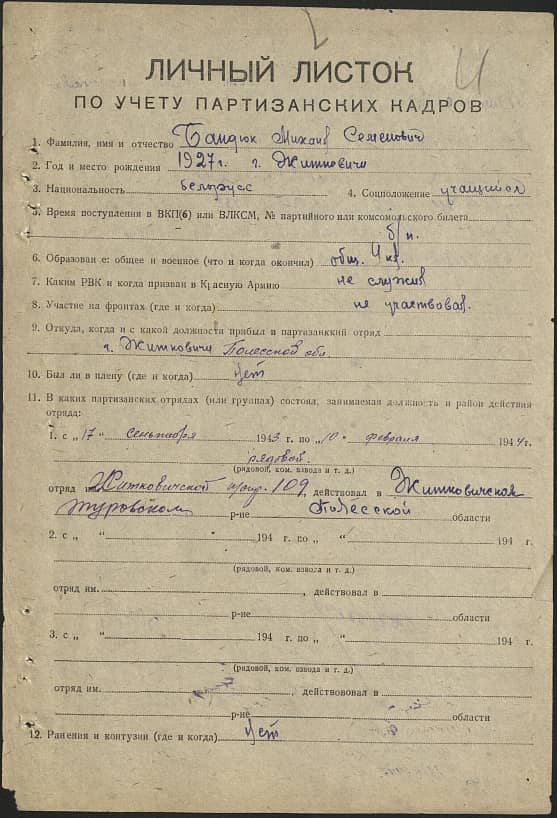 ЛИЧНЫЙ ЛИСТОК
ПО УЧЕТУ ПАРТИЗАНСКИХ КАДРОВ
1. Фамилия, имя и отчество Бандюк Михаил Семенович
2. Год и место рождения 1927 г. г. Житковичи
3. Национальность белорусс 4. Соцположение учащийся
5. Время поступления в ВКП(б) или ВЛКСМ, № партийного или комсомольского билета
б/п.
6. Образован е: общее и военное (что и когда окончил) общ. 4 кл.
7. Каким РВК и когда призван в Красную Армию не служил
8. Участие на фронтах (где и когда) не участвовал.
9. Откуда, когда и с какой должности прибыл в партизанкий отряд
г. Житковичи Полесской обл.
10. Был ли в плену (где и когда) нет
11. В каких партизанских отрядах (или группах) состоял, занимаемая должность и район действия
отряда:
1. с „17“ сентября 1943 г. по „10“ февраля 1944 г.
рядовой.
(рядовой, ком. взвода и т. д.)
отряд Житковичской 109 действовал в Житковичском
Туровском р-не Полесской области
2. с „ “ 194 г. по „ “ 194 г.
(рядовой, ком. взвода и т. д.)
отряд им. , действовал в
р-не области
3. с „ “ 194 г. по „ “ 194 г.
(рядовой, ком. взвода и т. д.)
отряд им. , действововал в
р-не области
12. Ранения и контузии (где и когда) нет